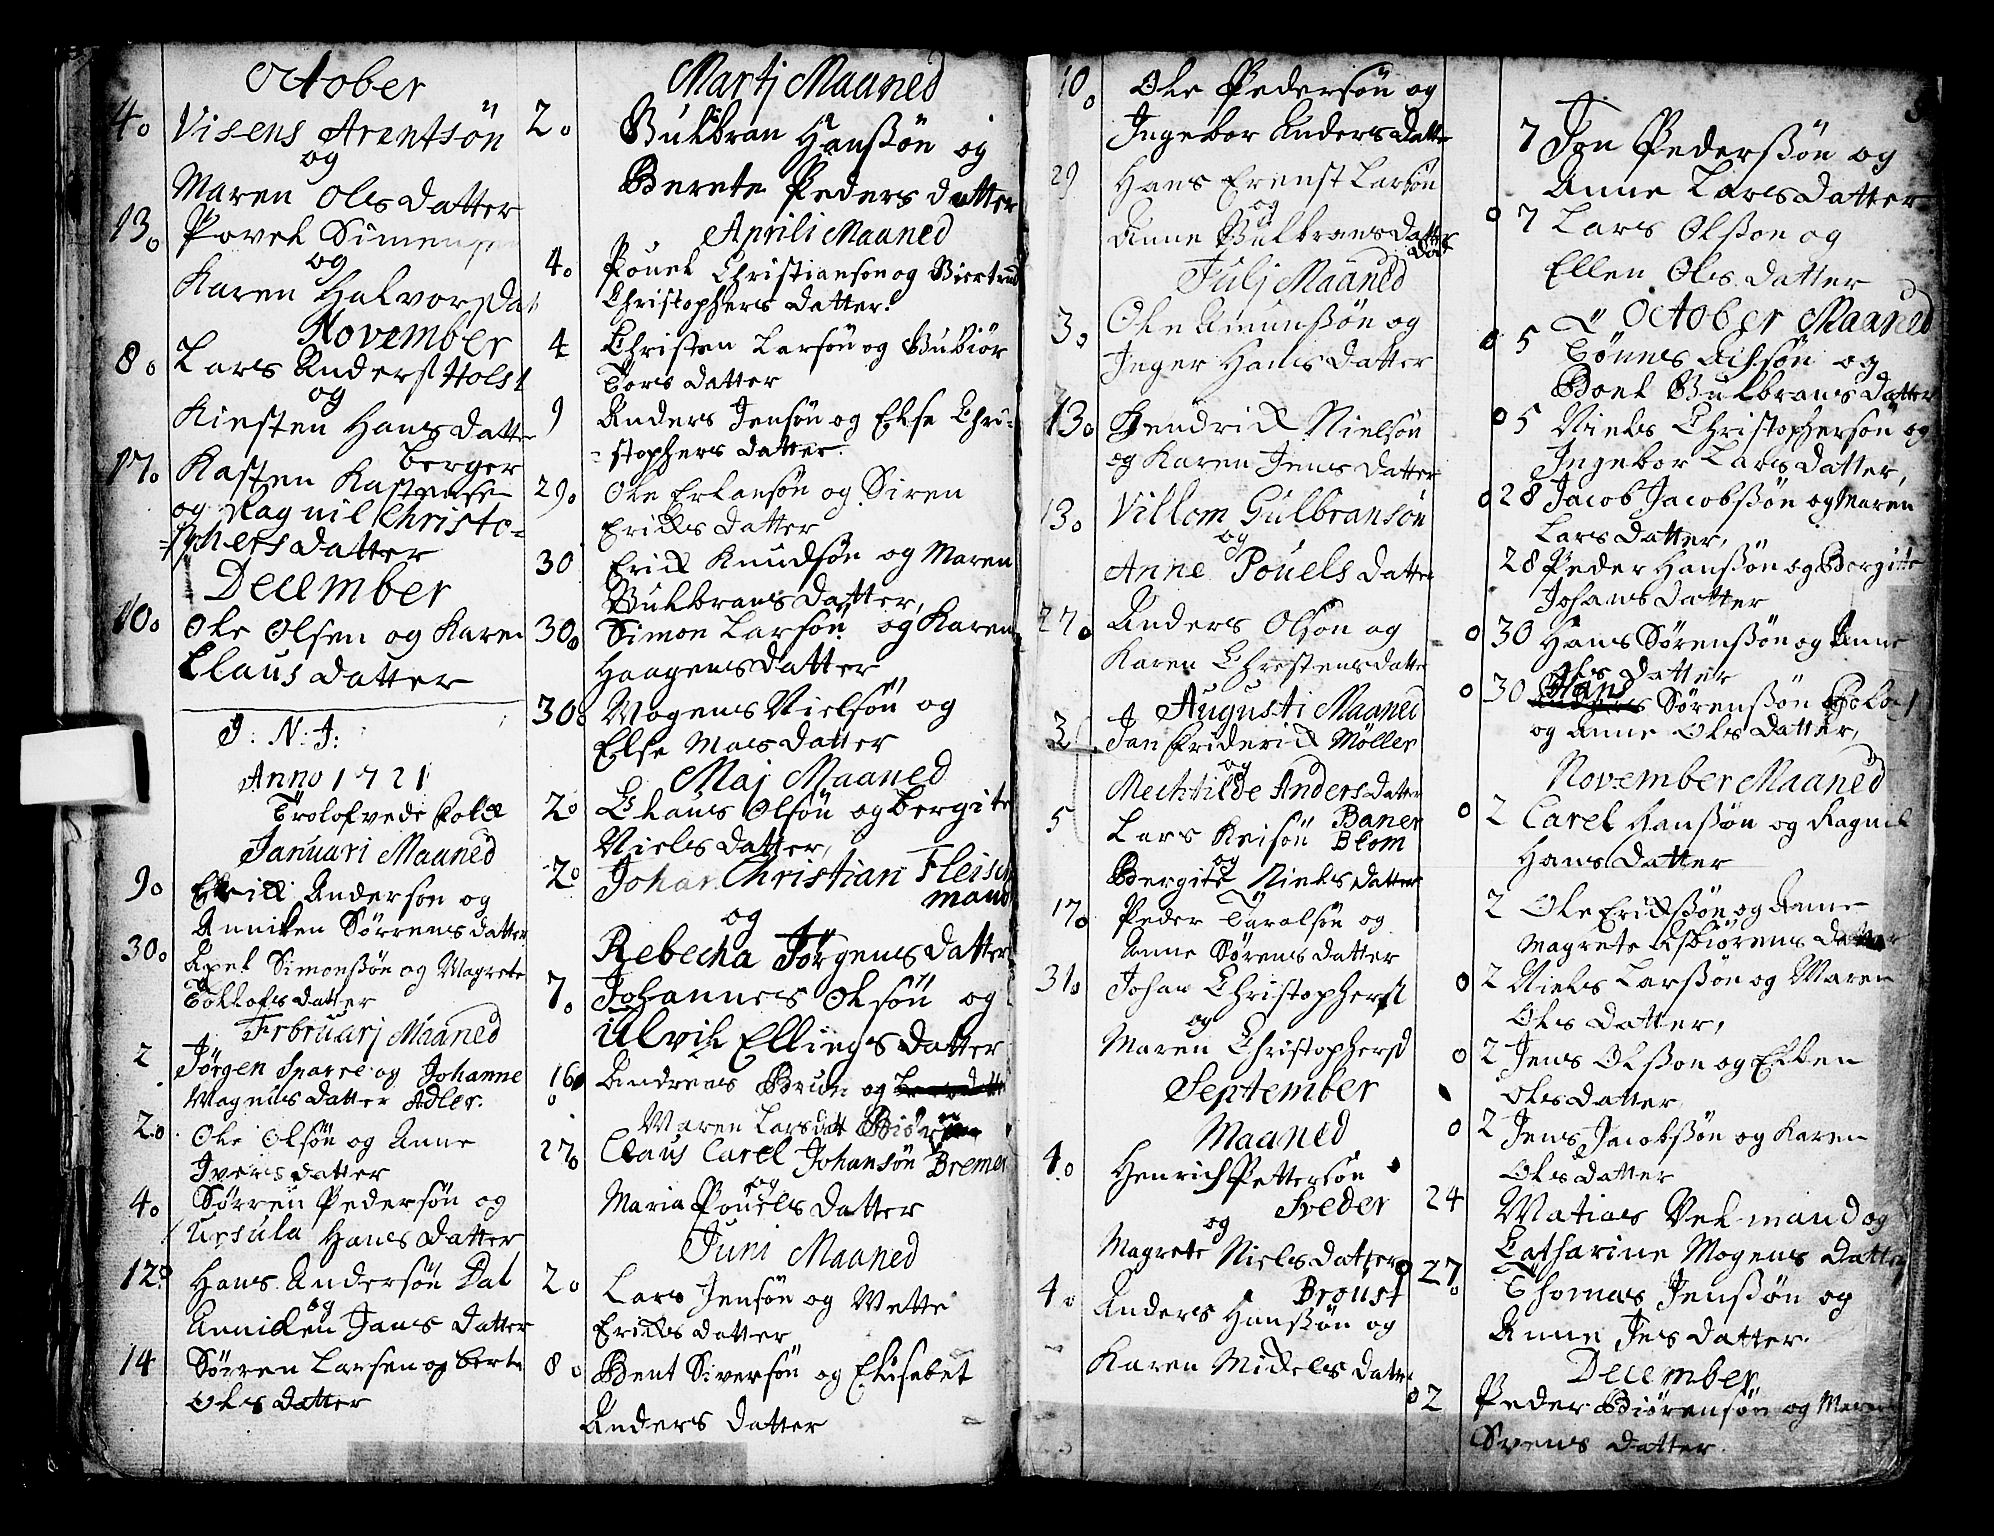 October
4 Visens Arentsön
og
Maren Olesdatter
13 Povel Simensen
og
Karen Halvorsdat
November
8 Lars Anders Holst
og
Kirsten Hansdatter
berger
17 Kasten Kastense
og Ragnil Christo-
-phersdatter
December
10 Ole Olsen og Karen
Clausdatter
J: N: J:
Anno 1721
Trolofvede Folck
Januari Maaned
9 Erick Anderson og
Anniken Sörrensdatter
30 Axel Simonssön og Magrete
Tollofsdatter
Februarj Maaned
2 Jörgen Sparre og Johanne
Magnusdatter Adler.
2 Ole Olsön og Anne
Iversdatter
4 Sörren Pedersön og
Ursula Hansdatter
12 Hans Andersön Dal
og
Annicken Jansdatter
14 Sören Larsen og berte
Olsdatter
Martj Maaned
2 Gulbran Hanssön og
Berete Pedersdatter
Aprili Maaned
4 Pouel Christianson og Giertrud
Christophersdatter.
4 Christen Larsön og Gubiör
Torsdatter
9 Anders Jensön og Else Chri-
-stophersdatter.
29 Ole Erlansön og Siren
Ericksdatter
30 Erick Knudsön og Maren
Gulbransdatter,
30 Simon Larsön og Karen
Haagensdatter
30 Mogens Nielsön og
Else Masdatter
Maj Maaned
2 Claus Olsön og bergite
Nielsdatter,
2 Johan Christian Fleisch
mand
og
Rebecha Jörgensdatter
7 Johannes Olsön og
Ulvik Ellingsdatter
16 Andreas Brun og
Maren Larsdatt
27 Claus Carel Johansön Bremer
og
Maria Pouelsdatter
Juni Maaned
2 Lars Jensön og Mette
Ericksdatter
8 Bent Siversön og Elisabet
Andersdatter
10 Ole Pedersön og
Ingebor Andersdatte
29 Hans Erenst Larsön
og
Anne Gulbransdatter
Julj Maaned
3 Ole Amunssön og
Inger Hansdatter
13 Hendrick Nielsön
og Karen Jensdatter
13 Villom Gulbransön
og
Anne Pouelsdatter
27 Anders Olsön og
Karen Christensdatte
Augusti Maaned
3 Jan Friderick Möller
og
Mechtilde Andersdatter
Baner
5 Lars Knisön Blom
og
Bergite Nielsdatter
17 Peder Taralsön og
Anne Sörensdatter
31 Johan Christophers
og
Maren Christophersd
September
Maaned
4 Henrich Pettersön
Sveder
og
Magrete Nielsdatter
Broust
4 Anders Hanssön og
Karen Mickelsdatte
7 Jon Pederssön og
Anne Larsdatter
7 Lars Olsson og
Ellen Olsdatter
October Maaned
5 Tönnes Ailsön og
Boel Gulbransdatter
5 Niels Christophersön og
Ingebor Larsdatter,
28 Jacob Jacobssön og Maren
Larsdatter,
28 Peder Hanssön og Bergitte
Johansdatter
30 Hans Sörenssön og Anne
Olsdatter
30 Hans Sörenssön Holst
og Anne Olsdatter,
November Maaned
2 Carel Hanssön og Ragnil
Hansdatter
2 Ole Erickssön og Anne
Magrete Asbiörensdatter
2 Niels Larssön og Maren
Olsdatter,
2 Jens Olsson og Ellen
Olsdatter
2 Jens Jacobssön og Karen
Olsdatter
24 Matias Velmand og
Catharine Mogensdatter
27 Thomas Jenssön og
Anne Jesdatter.
December
2 Peder Biörensön og Maren
Svensdatter.